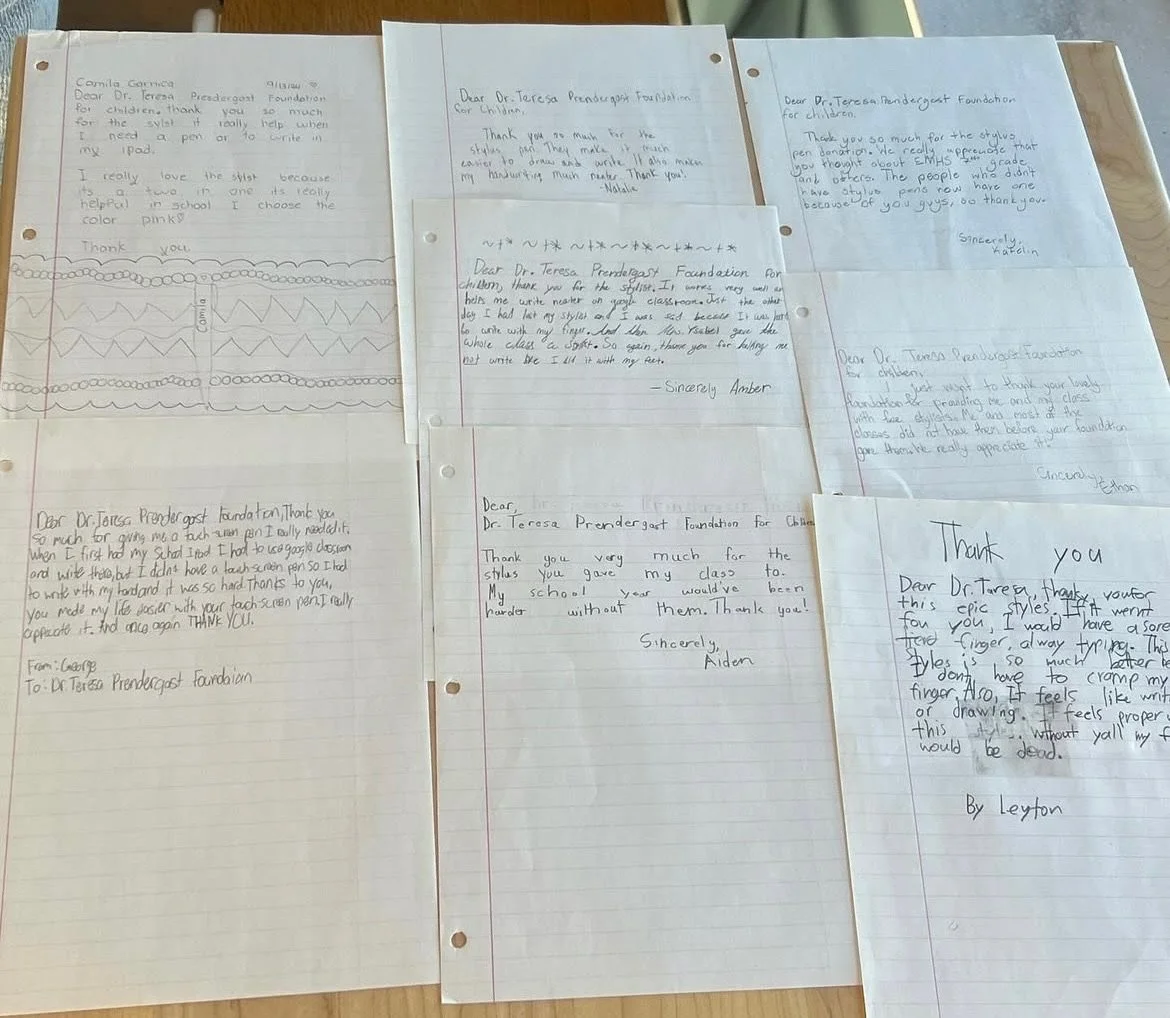 Camila Garnica 9/13/24 ♡
Dear Dr. Teresa Presdergast Foundation
for children, thank you so much
for the sylst it really help when
I need a pen or to write in
my ipad.
I really love the sylist because
its a two in one its really
helpful in school I choose the
color pink♡
Thank you
Camila
Dear Dr. Teresa Prendergast Foundation
for children,
Thank you so much for the
stylus pen. They make it much
easier to draw and write. It also makes
my handwriting much neater. Thank you!
-Natalie
Dear Dr. Teresa Prendergast Foundation
for children,
Thank you so much for the stylus
pen donation. We really appreciate that
you thought about EMHS grade
and others. The people who didn't
have stylus pens now have one
because of you guys, so thank you.
Sincerely,
Katelin
~+* ~+* ~+* ~+* ~+* ~+*
Dear Dr. Teresa Prendergast Foundation for
children, thank you for the stylist. It works very well and
helps me write neater on google classroom. Just the other
day I had lost my stylist and I was sad becaus It was hard
to write with my finger. And then Mrs. gave the
whole class a . So again, thank you for helping me
not write like I did it with my feet.
—Sincerely Amber
Dear Dr. Teresa Prendergast Foundation
for children,
I just want to thank your lovely
foundation for providing me and my class
with free stylists. Me and most of the
classes did not have them before your foundation
gave them. We really appreciate it.
Sincerely,
Ethan
Dear Dr. Teresa Prendergast Foundation, Thank you
so much for giving me a touch-screen pen I really needed it.
When I first had my School Ipad I had to use google classroom
and write there, but I didn't have a touch screen pen so I had
to write with my hand and it was so hard. Thanks to you,
you made my life easier with your touch-screen pen. I really
appreciate it. And once again THANK YOU.
From: George
To: Dr. Teresa Prendergast Foundaion
Dear,
Dr. Teresa Prendergast Foundation for Children
Thank you very much for the
stylus you gave my class to.
My school year would've been
harder without them. Thank you!
Sincerely,
Aiden
Thank you
Dear Dr. Taresa, thanks youfor
this epic styles. If it wernt
fou you, I would have a sore
finger, alway typing. This
styles is so much better
I dont have to cromp my
finger. Also, It feels like writ
or drawing. It feels proper
this without yall my f
would be dead.
By Leyton